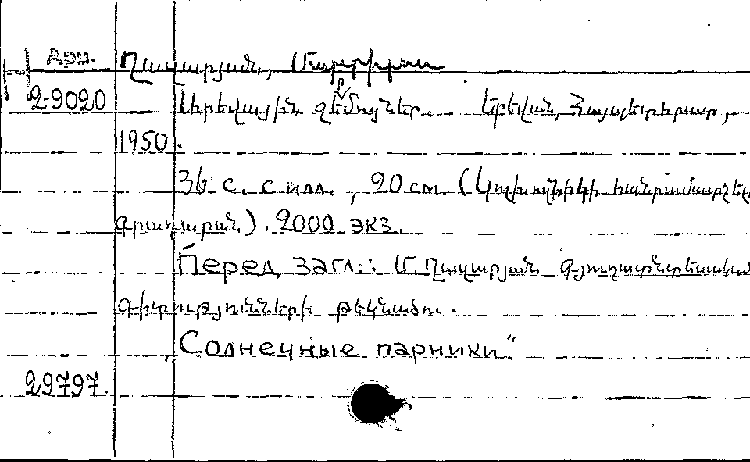 Арм. Ղազարյան, Մարտիրոս
2-9020 Արևային ջեռոցներ. Երևան, Հայպետհրատ,
1950.
36 с. с илл., 20 см (Կոլխոզնիկի
գրադարան). 2000 экз.
Перед загл.: Մ. Ղազարյան գյուղատնտեսական
գիտությունների թեկնածու.
„Солнечные парники"
29797.